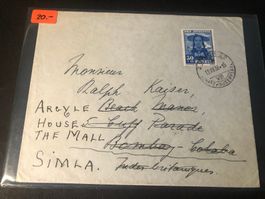 20.-
30
Monsieur
Ralph Kaiser,
ARGYLE Beach Manor,
HOUSE 5 Cuff Parade
THE MALL Bombay-Colaba
SIMLA. Indes britanniques